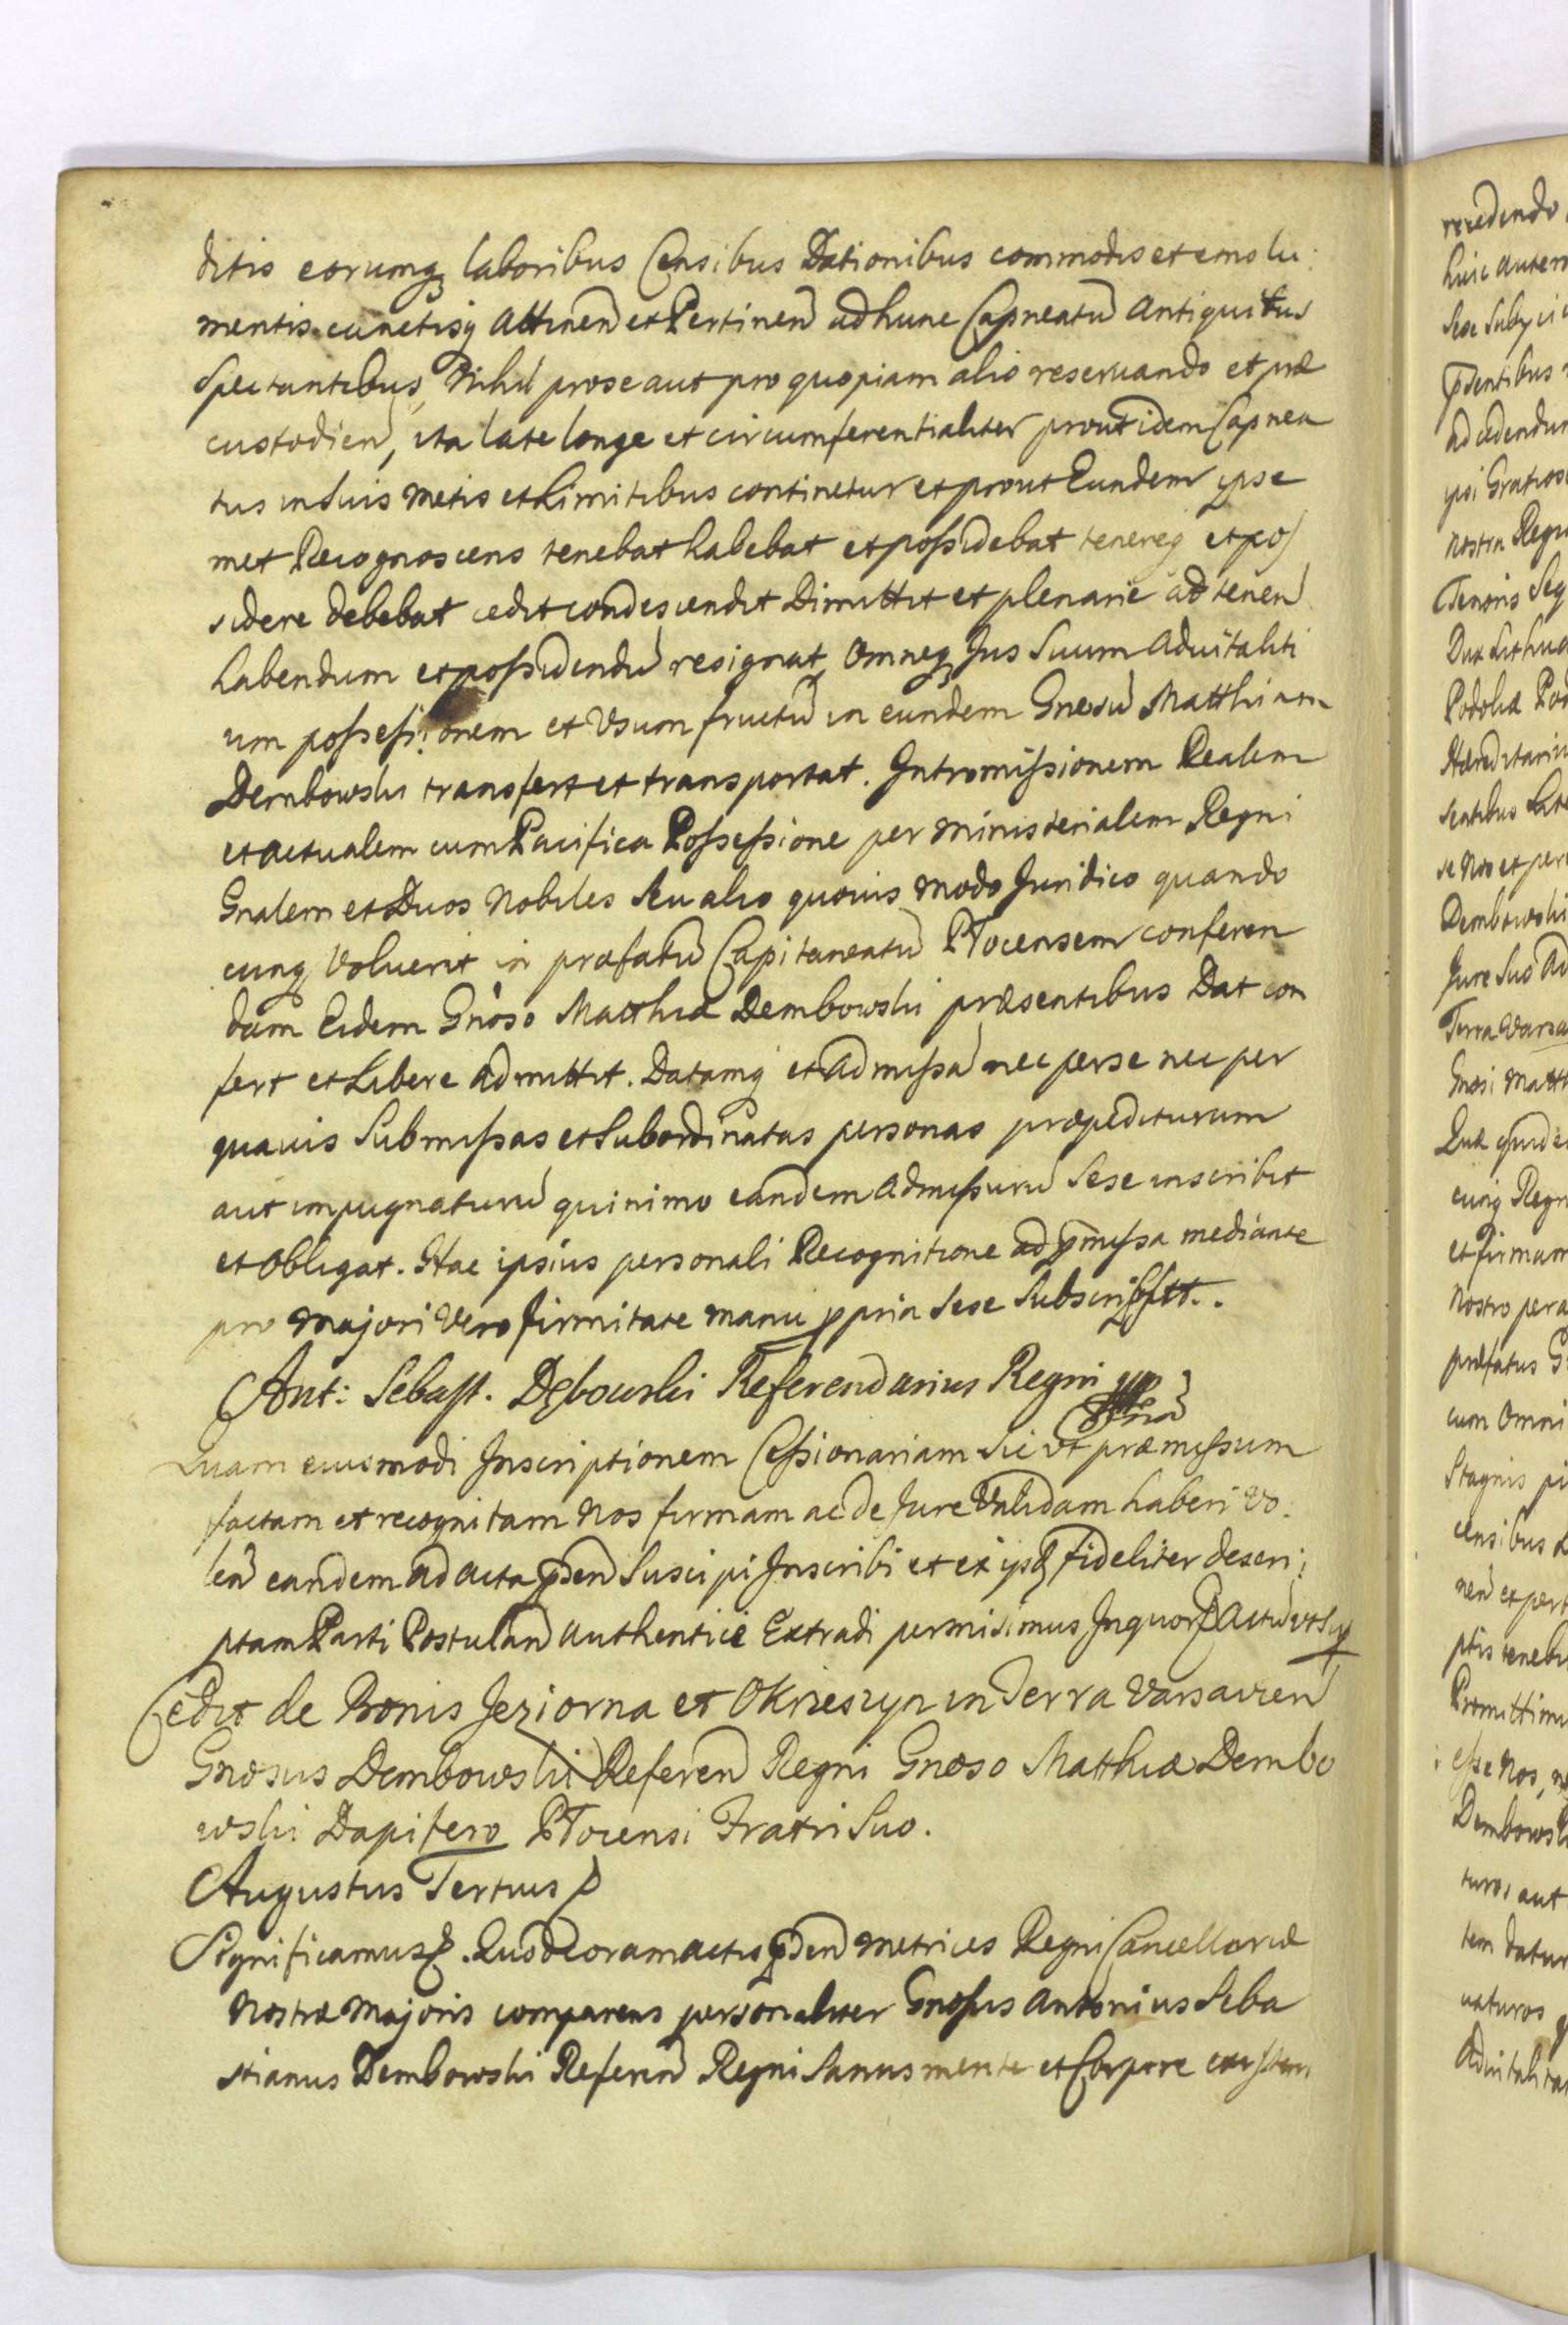 ditis eorumq laboribus Censibus Dationibus commodis et emolu:
mentis cunctisq Attinen et Pertinen ad hunc Capneatu Antiquitus
Spectantibus, Nihil pro se aut pro quopiam alio reservando et præ
custodien, ita late longe et circumferentialiter prout idem Capnea
tus in Suis Metis et Limitibus continetur et prout Eundem ipse
met Recognoscens tenebat habebat et possidebat tenereq et pos
sidere debebat cedit condescendit Dimittit et plenarie ad tenen
habendum et possidendu resignat, Omneq Jus Suum Advitaliti
um possessionem et Usum fructu in eundem Gnosu Matthiam
Dembowski transfert et transportat. Intromissionem Realem
et actualem cum Pacifica Possessione per Ministerialem Regni
Gnalem et Duos Nobiles Seu alio quovis Modo Juridico quando
cunq Voluerit in præfatu Capitaneatu Plocensem conferen
dam Eidem Gnoso Matthiæ Dembowski præsentibus Dat con
fert et Libere Admittit. Datamq et Admissa nec per se nec per
quavis Submissas et Subordinatas personas præpediturum
aut impugnaturu quinimo eandem Admissuru Sese inscribit
et Obligat. Hac ipsius personali Recognitione ad pmissa mediante
pro Majori Vero firmitate manu ppria Sese Subscripsit.
Ant: Sebast. Dębowski Referendarius Regni mp
Quam eiusmodi Inscriptionem Cessionariam Sic Ut præmissum
factam et recognitam Nos firmam ac de Jure Validam haberi Vo:
len eandem ad acta pden Suscipi Inscribi et ex ijsd fideliter descri:
ptam Parti Postulan Authentice Extradi permisimus In quor Actu ut Sup
Cedit de Bonis Jeziorna et Okrzeszyn in Terra Varsavien
Gnosus Dembowski Referen Regni Gnoso Matthiæ Dembo
wski Dapifero Plocensi Fratri Suo.
Augustus Tertius
Significamus. Quod Coram actis pden Metrices Regni Cancellariæ
Nostræ Majoris comparens personaliter Gnosus Antonius Seba
stianus Dembowski Referen Regni Sanus mente et Corpore existen